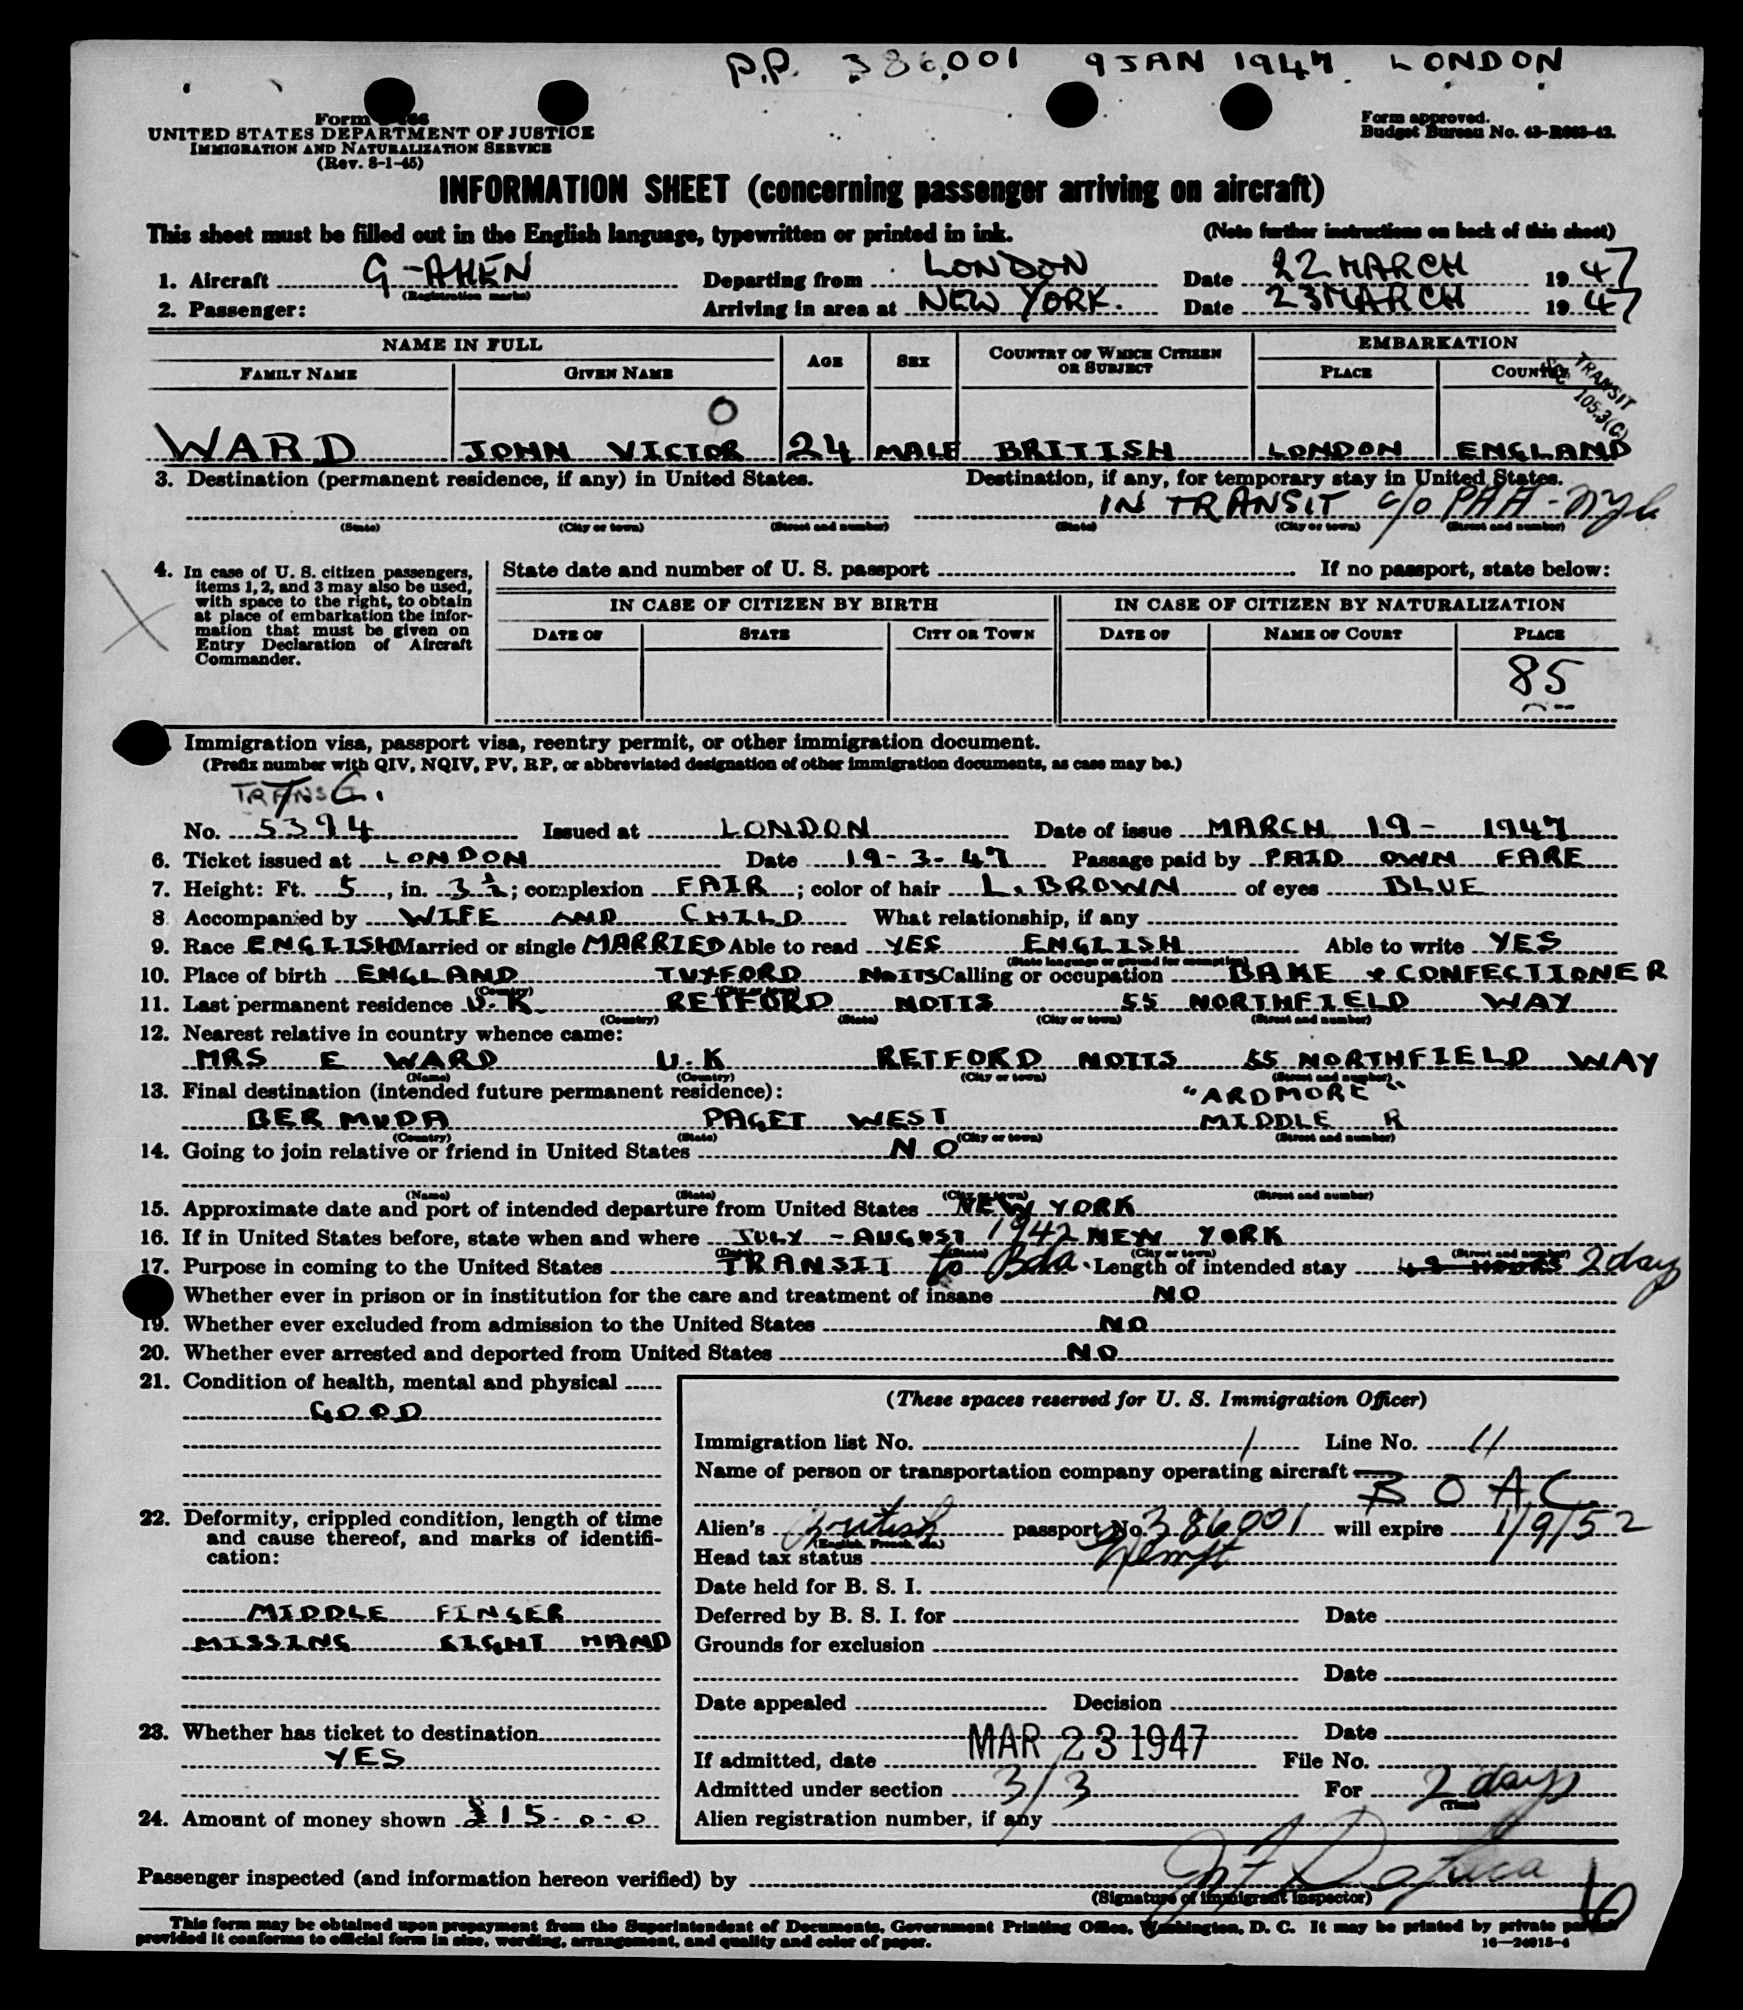 P.P. 386,001 9 JAN 1947. LONDON
Form
UNITED STATES DEPARTMENT OF JUSTICE
IMMIGRATION AND NATURALIZATION SERVICE
(Rev. 8-1-45)
Form approved.
Budget Bureau No.
INFORMATION SHEET (concerning passenger arriving on aircraft)
This sheet must be filled out in the English language, typewritten or printed in ink.
(Note further instructions on back of this sheet)
1. Aircraft G-AHEN Departing from LONDON Date 22 MARCH 1947
(Registration marks)
2. Passenger: Arriving in area at NEW YORK. Date 23 MARCH 1947
NAME IN FULL AGE SEX COUNTRY OF WHICH CITIZEN OR SUBJECT EMBARKATION
FAMILY NAME GIVEN NAME PLACE COUNTRY
TRANSIT
105.3(C)
O
WARD JOHN VICTOR 24 MALE BRITISH LONDON ENGLAND
3. Destination (permanent residence, if any) in United States. Destination, if any, for temporary stay in United States.
IN TRANSIT c/o PAA - NYC
(State) (City or town) (Street and number) (State) (City or town) (Street and number)
4. In case of U. S. citizen passengers, items 1, 2, and 3 may also be used, with space to the right, to obtain at place of embarkation the information that must be given on Entry Declaration of Aircraft Commander.
State date and number of U. S. passport If no passport, state below:
IN CASE OF CITIZEN BY BIRTH IN CASE OF CITIZEN BY NATURALIZATION
DATE OF STATE CITY OR TOWN DATE OF NAME OF COURT PLACE
85
Immigration visa, passport visa, reentry permit, or other immigration document.
(Prefix number with QIV, NQIV, PV, RP, or abbreviated designation of other immigration documents, as case may be.)
No. 5394 Issued at LONDON Date of issue MARCH 19- 1947
6. Ticket issued at LONDON Date 19-3-47 Passage paid by PAID OWN FARE
7. Height: Ft. 5, in. 3½; complexion FAIR; color of hair L. BROWN of eyes BLUE
8 Accompanied by WIFE AND CHILD What relationship, if any
9. Race ENGLISH Married or single MARRIED Able to read YES ENGLISH Able to write YES
(State language or ground for exemption)
10. Place of birth ENGLAND TUXFORD NOTTS Calling or occupation BAKE & CONFECTIONER
(Country) (City or town)
11. Last permanent residence U.K. RETFORD NOTTS 55 NORTHFIELD WAY
(Country) (State) (City or town) (Street and number)
12. Nearest relative in country whence came:
MRS E WARD U.K RETFORD NOTTS 55 NORTHFIELD WAY
(Name) (Country) (City or town) (Street and number)
13. Final destination (intended future permanent residence): "ARDMORE"
BERMUDA PAGET WEST MIDDLE R
(Country) (State) (City or town) (Street and number)
14. Going to join relative or friend in United States NO
(Name) (State) (City or town) (Street and number)
15. Approximate date and port of intended departure from United States NEW YORK
16. If in United States before, state when and where JULY - AUGUST 1942 NEW YORK
(Date) (State) (City or town) (Street and number)
17. Purpose in coming to the United States TRANSIT to Bda. Length of intended stay 48 HOURS 2 days
Whether ever in prison or in institution for the care and treatment of insane NO
19. Whether ever excluded from admission to the United States NO
20. Whether ever arrested and deported from United States NO
21. Condition of health, mental and physical
GOOD
22. Deformity, crippled condition, length of time and cause thereof, and marks of identification:
MIDDLE FINGER
MISSING RIGHT HAND
23. Whether has ticket to destination
YES
24. Amount of money shown £15-0-0
(These spaces reserved for U. S. Immigration Officer)
Immigration list No. 1 Line No. 11
Name of person or transportation company operating aircraft
B O A C
Alien's British passport No. 386001 will expire 1/9/52
(English, French, etc.)
Head tax status Exempt
Date held for B. S. I.
Deferred by B. S. I. for Date
Grounds for exclusion
Date
Date appealed Decision
Date
If admitted, date MAR 23 1947 File No.
Admitted under section 3/3 For 2 days
(Time)
Alien registration number, if any
Passenger inspected (and information hereon verified) by
(Signature of immigrant inspector)
This form may be obtained upon prepayment from the Superintendent of Documents, Government Printing Office, Washington, D. C. It may be printed by private parties
provided it conforms to official form in size, wording, arrangement, and quality and color of paper.
16—24915-4